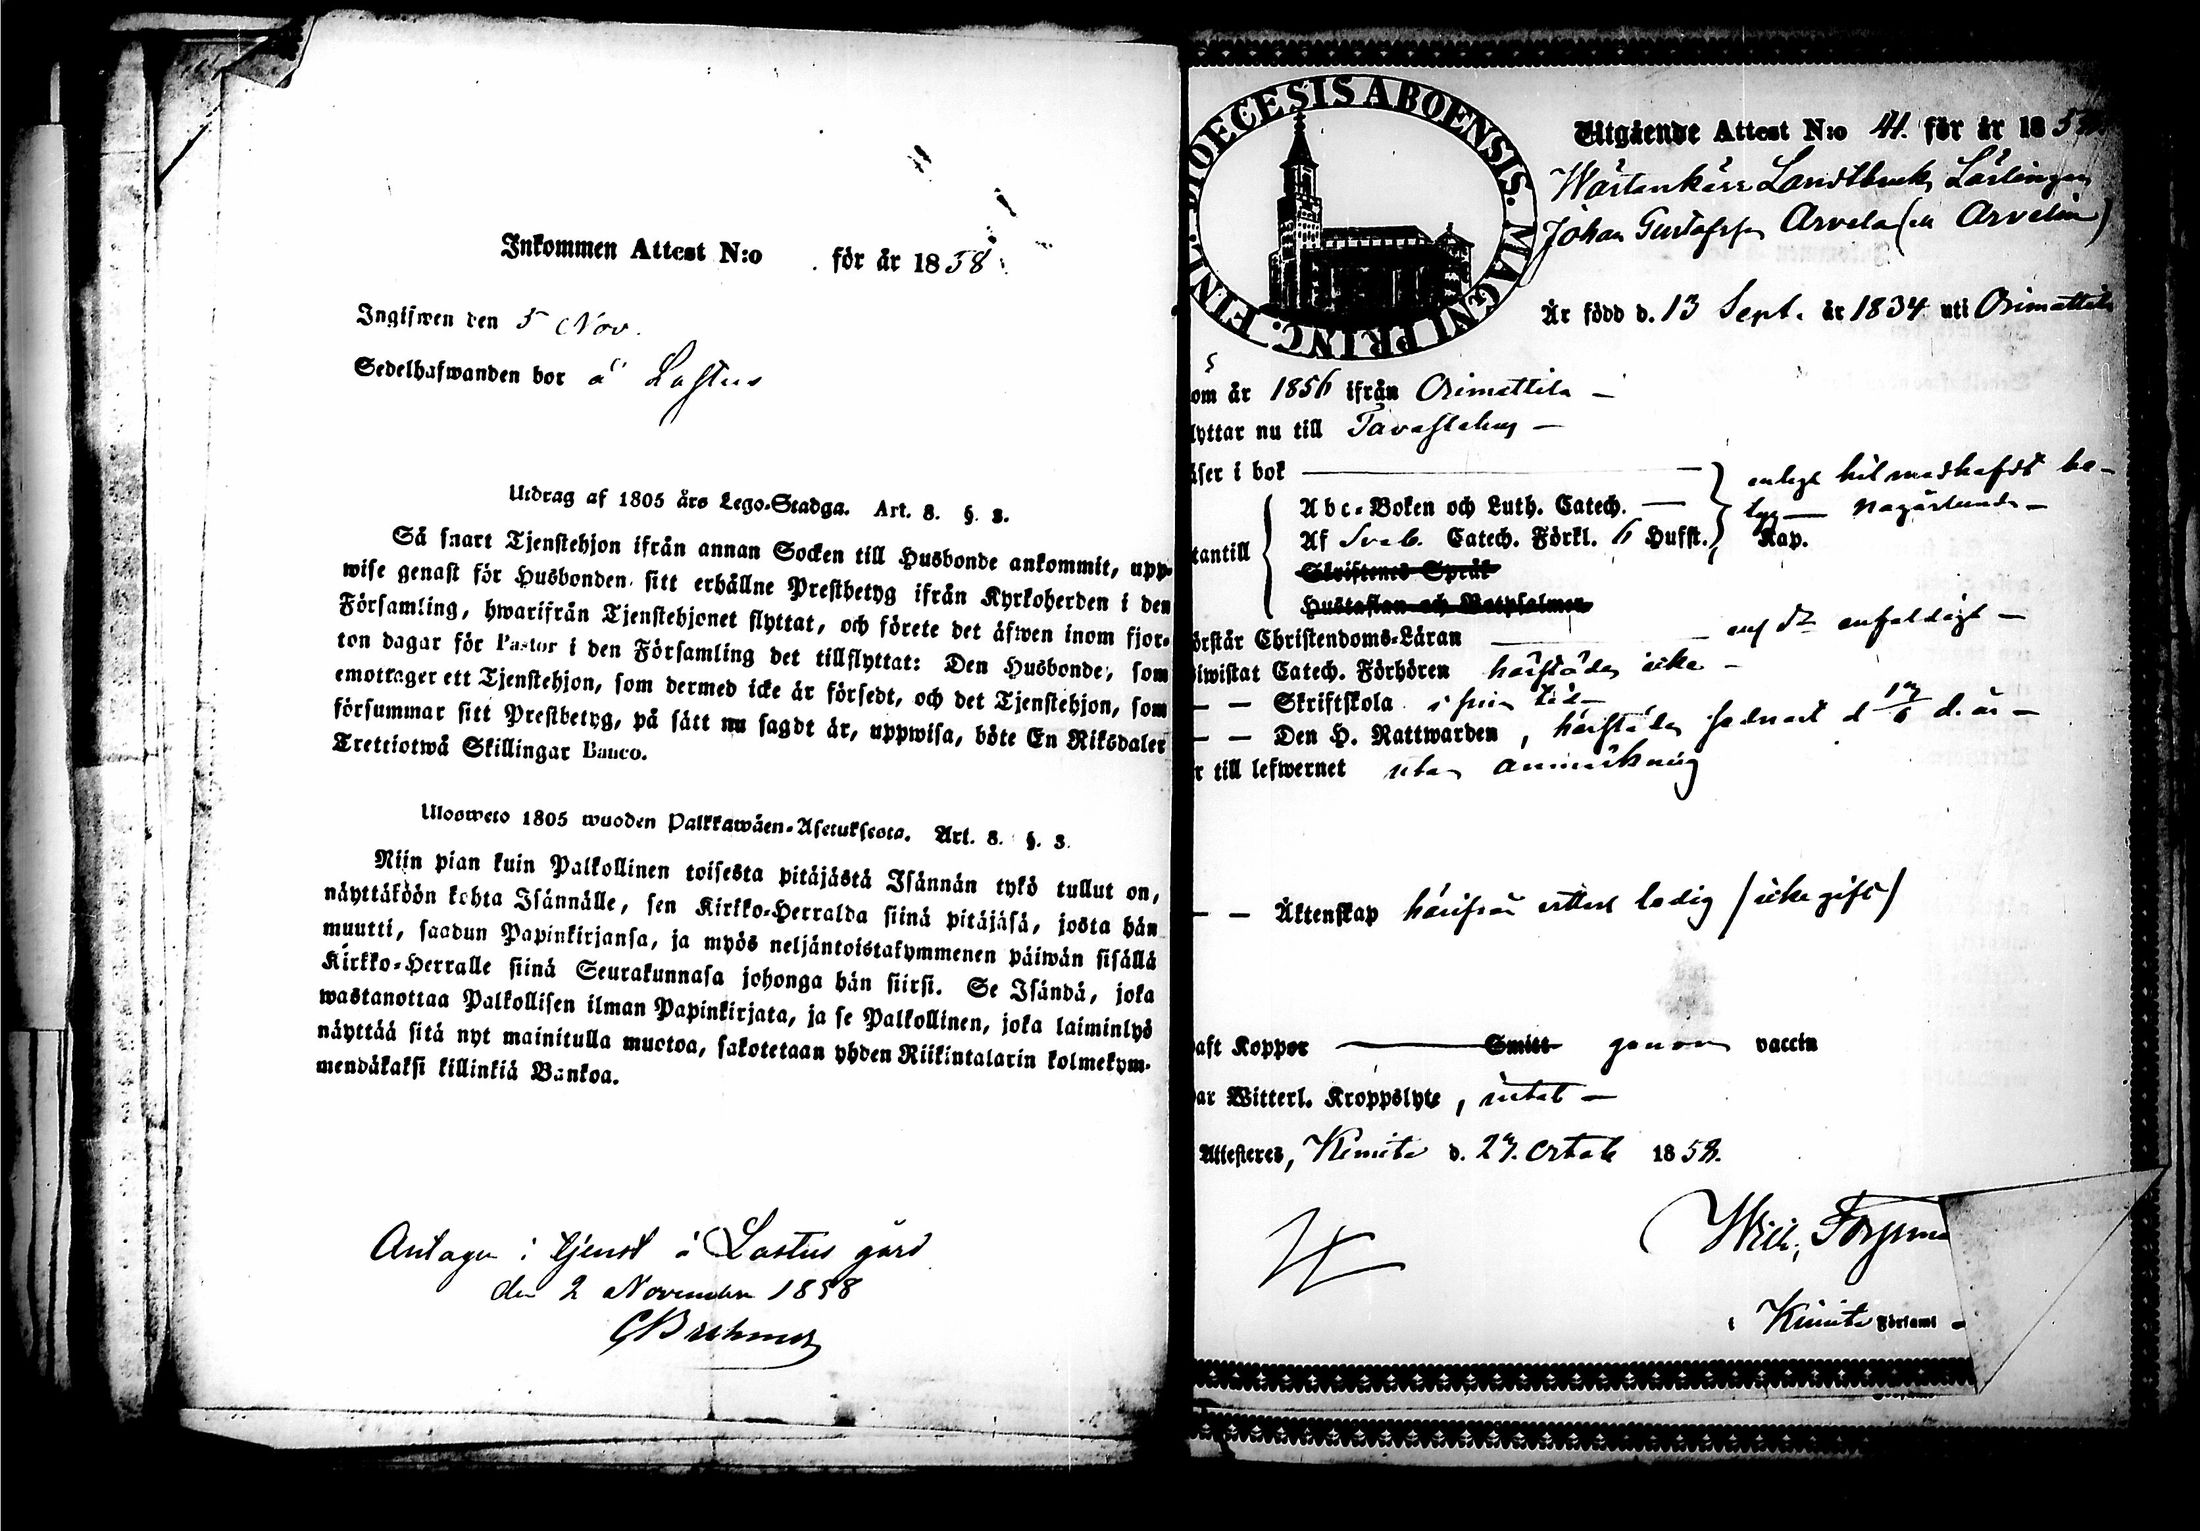 Inkommen Attest N:o . för år 1858.
Ingifwen den 5 Nov.
Sedelhafwanden bor å Lastus
Utdrag af 1805 års Lego-Stadga. Art. 8. §. 3.
Så snart Tjenstehjon ifrån annan Socken till Husbonde ankommit, upp-
wise genast för Husbonden sitt erhållne Prestbetyg ifrån Kyrkoherden i den
Församling, hwarifrån Tjenstehjonet flyttat, och förete det äfwen inom fjor-
ton dagar för Pastor i den Församling det tillflyttat: Den Husbonde, som
emottager ett Tjenstehjon, som dermed icke är försedt, och det Tjenstehjon, som
försummar sitt Prestbetyg, på sätt nu sagdt är, uppwisa, böte En Riksdaler
Trettiotwå Skillingar Banco.
Ulosweto 1805 wuoden Palkkawäen-Asetuksesta. Art. 8. §. 3.
Niin pian kuin Palkollinen toisesta pitäjästä Isännän tykö tullut on,
näyttäköön kohta Isännälle, sen Kirkko-Herralda siinä pitäjäsä, josta hän
muutti, saadun Papinkirjansa, ja myös neljäntoistakymmenen päiwän sisällä
Kirkko-Herralle siinä Seurakunnasa johonga hän siirsi. Se Isändä, joka
wastanottaa Palkollisen ilman Papinkirjata, ja se Palkollinen, joka laiminlyö
näyttää sitä nyt mainitulla muotoa, sakotetaan yhden Riikintalarin kolmekym-
mendäkaksi killinkiä Bankoa.
Antagen i tjenst å Lastus gård
den 2 November 1858
DIOECESIS ABOENSIS. MAGNI PRINC. FINL.
Utgående Attest N:o 41. för år 185
Landtbruks Lärlingen
Johan Gustafsson Arvela (el Arvelin)
Är född d. 13 Sept. år 1834 uti Orimattila
om år 1856 ifrån Orimattila —
lyttar nu till Tavastehus —
äser i bok — enligt hitmedhafdt be-
Abc-Boken och Luth. Catech. — tyg — någorlunda —
tantill Af Sveb. Catech. Förkl. 6 Hufst. Kap.
Skriftenes Språk
Hustaflan och Botpsalmer
örstår Christendoms-Läran — enl do enfaldigt —
iwistat Catech. Förhören härstädes icke —
— — Skriftskola i sin tid —
— — Den H. Nattwarden, härstädes sednast d d. år —
r till lefwernet utan anmärkning
— — Äktenskap härifrån ledig (icke gift)
aft Koppor — Smitt genom vaccin
ar Witterl. Kroppslyte, intet —
Attesteres, Kimito d. 27. Octob 1858.
Wilh.
i Kimito Församl